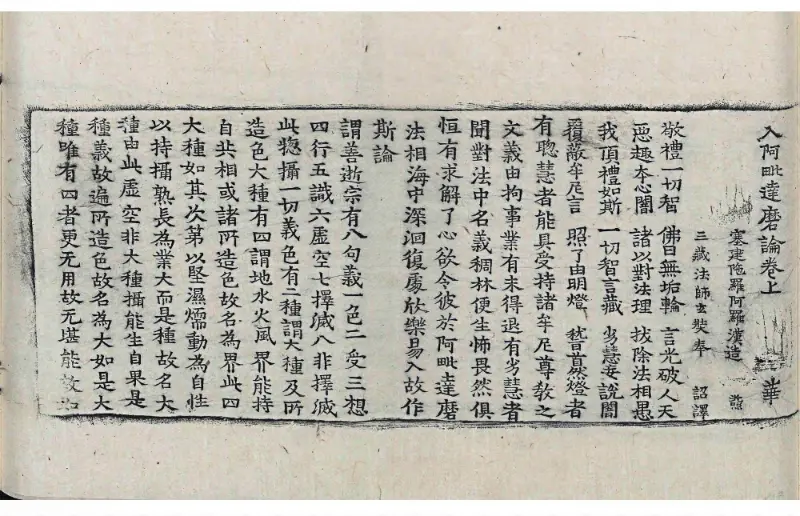 入阿毗達磨論卷上 華
塞建陁羅阿羅漢造
三藏法師玄奘奉 詔譯
敬禮一切智 佛日無垢輪 言光破人天
惡趣本心闇 諸以對法理 拔除法相愚
我頂禮如斯 一切智言藏 劣慧妄說闇
覆蔽牟尼言 照了由明燈 稽首然燈者
有聰慧者能具受持諸牟尼尊教之
文義由拘事業有未得退有劣慧者
聞對法中名義稠林便生怖畏然俱
恒有求解了心欲令彼於阿毗達磨
法相海中深洄復處欣樂易入故作
斯論
謂善逝宗有八句義一色二受三想
四行五識六虛空七擇滅八非擇滅
此惣攝一切義色有二種謂大種及所
造色大種有四謂地水火風界能持
自共相或諸所造色故名為界此四
大種如其次第以堅濕煗動為自性
以持攝熟長為業大而是種故名大
種由此虛空非大種攝能生自果是
種義故遍所造色故名為大如是大
種唯有四者更无用故无堪能故如